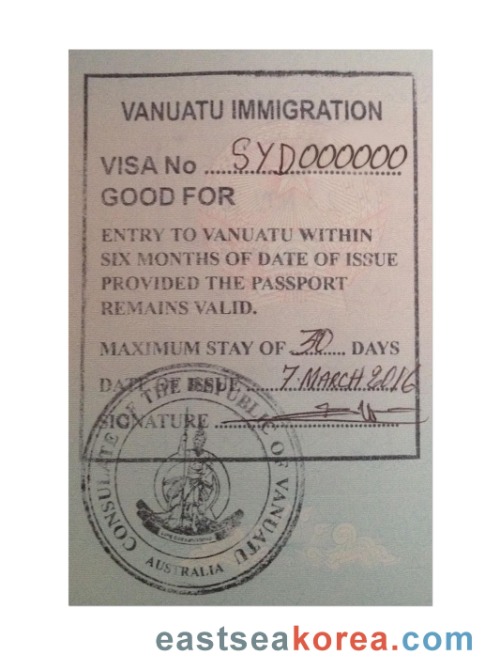 VANUATU IMMIGRATION
VISA No ........ SYD000000
GOOD FOR
ENTRY TO VANUATU WITHIN
SIX MONTHS OF DATE OF ISSUE
PROVIDED THE PASSPORT
REMAINS VALID.
MAXIMUM STAY OF 30 DAYS
DATE OF ISSUE ..... 7 MARCH 2016
SIGNATURE
CONSULATE OF THE REPUBLIC OF VANUATU
AUSTRALIA
eastseakorea.com